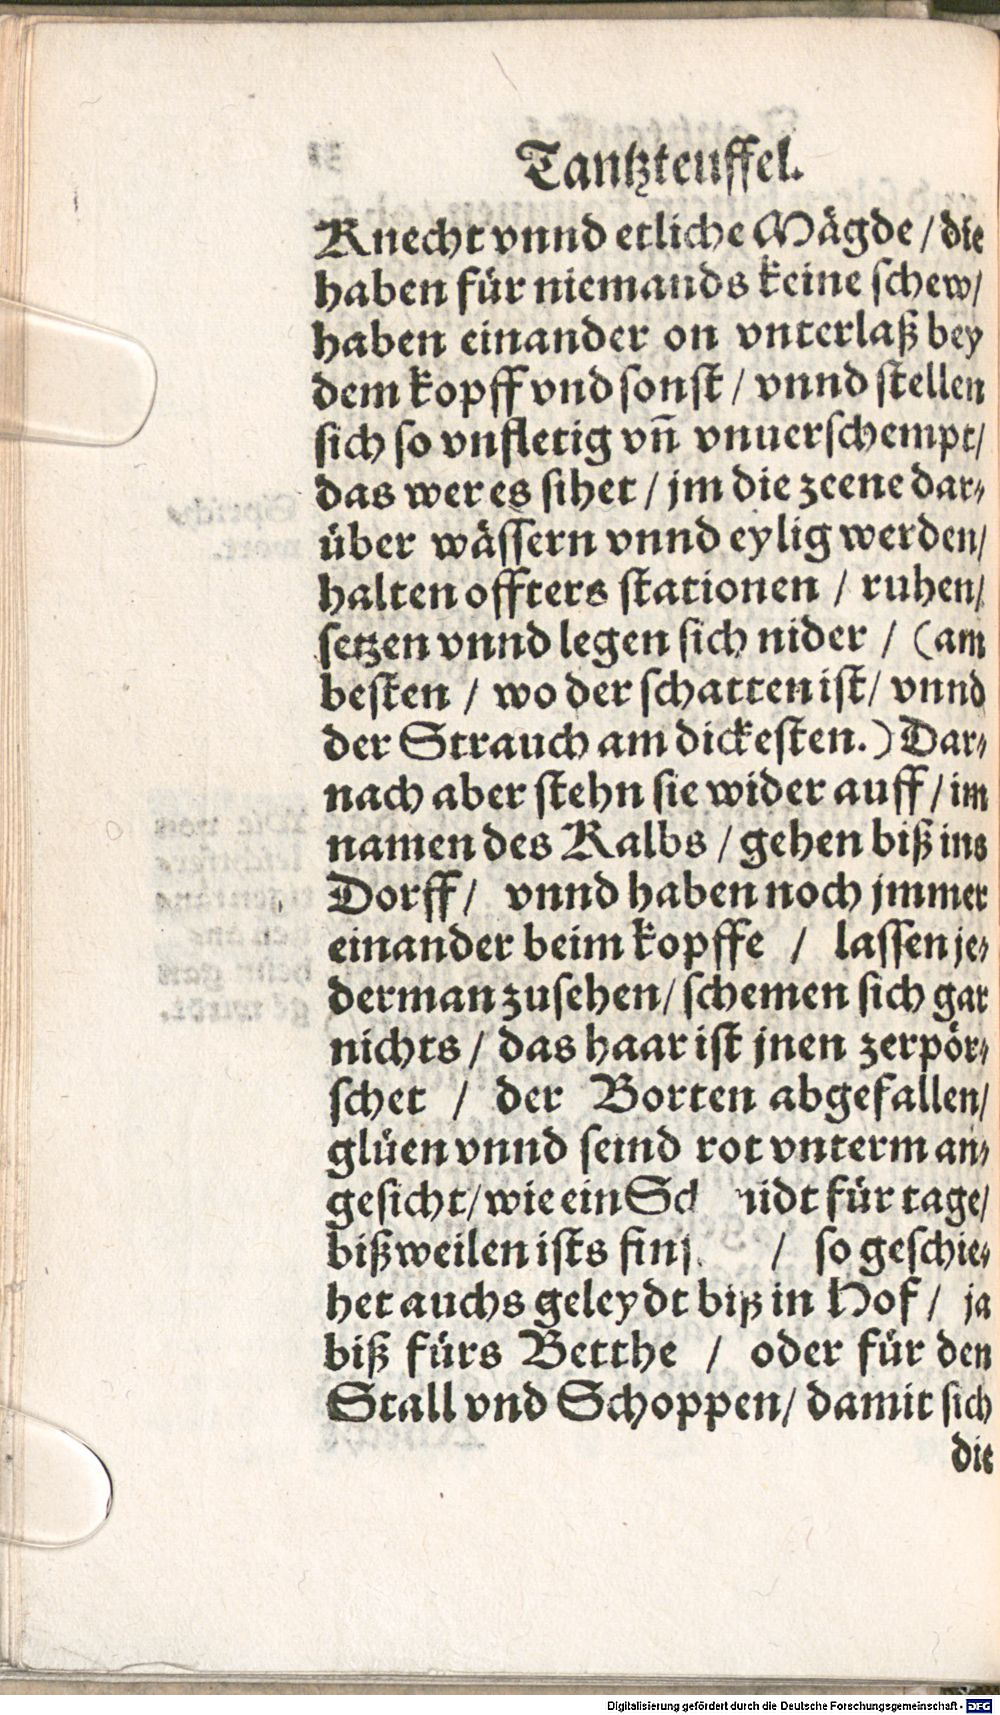 Tantzteuffel.
Knecht vnnd etliche Mägde / die
haben für niemands keine schew /
haben einander on vnterlaß bey
dem kopff vnd sonst / vnnd stellen
sich so vnfletig vñ vnuerschempt /
das wer es sihet / jm die zeene dar⸗
über wässern vnnd eylig werden /
halten offters stationen / ruhen /
setzen vnnd legen sich nider / (am
besten / wo der schatten ist / vnnd
der Strauch am dickesten.) Dar⸗
nach aber stehn sie wider auff / im
namen des Kalbs / gehen biß ins
Dorff / vnnd haben noch jmmer
einander beim kopffe / lassen je⸗
derman zusehen / schemen sich gar
nichts / das haar ist jnen zerpör⸗
schet / der Borten abgefallen /
glüen vnnd seind rot vnterm an⸗
gesicht / wie ein für tage /
bißweilen ists / so geschie⸗
het auchs geleydt biß in Hof / ja
biß fürs Betthe / oder für den
Stall vnd Schoppen / damit sich
die
Digitalisierung gefördert durch die Deutsche Forschungsgemeinschaft - DFG